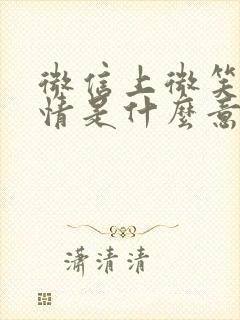 微信上微笑
情是什麼意
潇清清